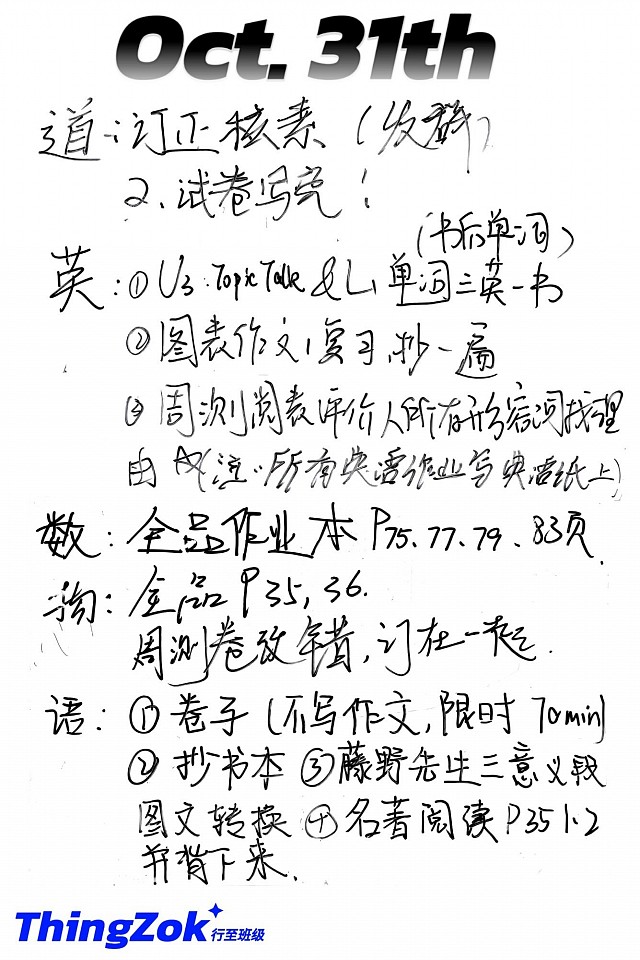 Oct. 31th
道:订正核素(发群)
2.试卷写完!
(书后单词)
英:①U3 Topic Talk & L1单词三英一书
②图表作文1复习,抄一遍
③周测阅表评价人所有形容词找理
由 (注:所有英语作业写英语纸上)
数:全品作业本P75.77.79.83页.
物:全品P35,36.
周测卷改错,订在一起.
语:①卷子(不写作文,限时70min)
②抄书本③藤野先生三意义段
图文转换④名著阅读P35 1.2
并背下来.
ThingZok
行至班级